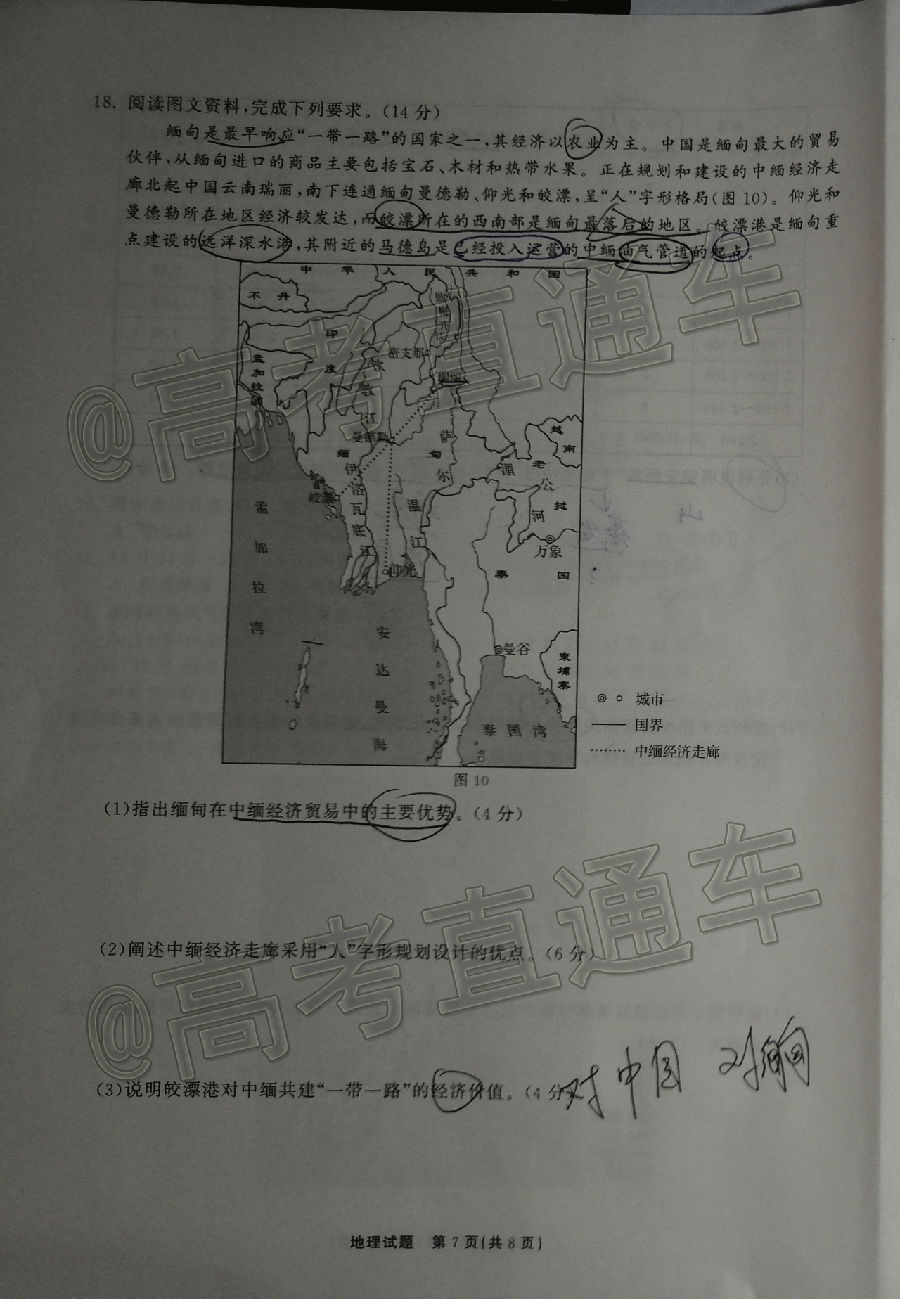 18. 阅读图文资料,完成下列要求。(14 分)
缅甸是最早响应“一带一路”的国家之一,其经济以农业为主。中国是缅甸最大的贸易
伙伴,从缅甸进口的商品主要包括宝石、木材和热带水果。正在规划和建设的中缅经济走
廊北起中国云南瑞丽,南下连通缅甸曼德勒、仰光和皎漂,呈“人”字形格局(图 10)。仰光和
曼德勒所在地区经济较发达,而皎漂所在的西南部是缅甸最落后的地区。皎漂港是缅甸重
点建设的远洋深水港,其附近的马德岛是已经投入运营的中缅油气管道的起点。
中华人民共和国
不丹
印度
孟加拉国
密支那
瑞丽
钦敦江
曼德勒
缅甸
萨尔温江
伊洛瓦底江
皎漂
仰光
湄公河
越南
老挝
万象
泰国
曼谷
柬埔寨
孟加拉湾
安达曼海
泰国湾
城市
国界
中缅经济走廊
图 10
(1)指出缅甸在中缅经济贸易中的主要优势。(4 分)
(2)阐述中缅经济走廊采用“人”字形规划设计的优点。(6 分)
(3)说明皎漂港对中缅共建“一带一路”的经济价值。(4 分)
对中国 对缅甸
地理试题 第 7 页(共 8 页)
@高考直通车
@高考直通车